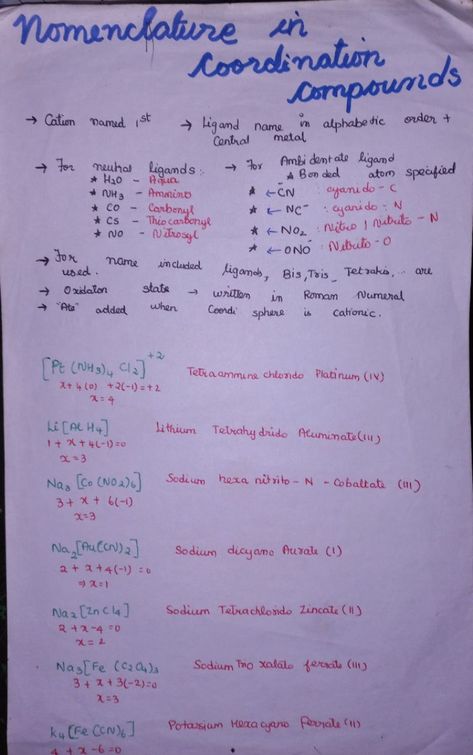 Nomenclature in
Coordination
compounds
→ Cation named 1st → Ligand name in alphabetic order +
Central metal
→ For neutral ligands: → For Ambidentate ligand
* Bonded atom specified
* H2O - Aqua
* NH3 - Ammino
* CO - Carbonyl
* CS - Thiocarbonyl
* NO - Nitrosyl
* ←CN : cyanido - C
* ← NC⁻ : cyanido : N
* ← NO2 : Nitro | Nitrito - N
* ← ONO : Nitrito - O
→ For name included ligands, Bis, Tris, Tetrakis, .. are
used.
→ Oxidation state → written in Roman Numeral
→ "Ate" added when Coordi sphere is cationic.
[Pt (NH3)4 Cl2]+2 Tetraammine chlorido Platinum (IV)
x + 4(0) + 2(-1) = +2
x = 4
Li[AlH4] Lithium Tetrahydrido Aluminate (III)
1 + x + 4(-1) = 0
x = 3
Na3 [Co (NO2)6] Sodium hexa nitrito - N - Cobaltate (III)
3 + x + 6(-1)
x = 3
Na2[Au(CN)2] Sodium dicyano Aurate (I)
2 + x + 4(-1) = 0
⇒ x = 1
Na2[ZnCl4] Sodium Tetrachlorido Zincate (II)
2 + x - 4 = 0
x = 2
Na3[Fe (C2O4)3 Sodium Trioxalato ferrate (III)
3 + x + 3(-2) = 0
x = 3
K4[Fe(CN)6] Potassium Hexacyano Ferrate (II)
4 + x - 6 = 0